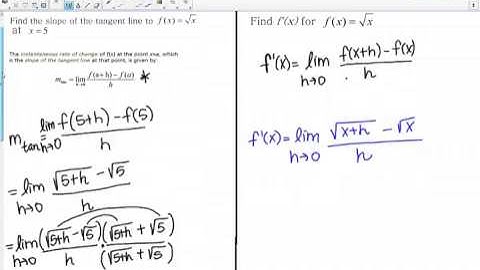 Find the slope of the tangent line to f(x) = √x
at x = 5
The instantaneous rate of change of f(x) at the point x=a, which
is the slope of the tangent line at that point, is given by:
m_tan = lim_{h→0} (f(a+h) − f(a))/h *
m_tan = lim_{h→0} (f(5+h) − f(5))/h
= lim_{h→0} (√(5+h) − √5)/h
= lim_{h→0} (√(5+h) − √5)/h · (√(5+h) + √5)/(√(5+h) + √5)
Find f'(x) for f(x) = √x
f'(x) = lim_{h→0} (f(x+h) − f(x))/h
f'(x) = lim_{h→0} (√(x+h) − √x)/h